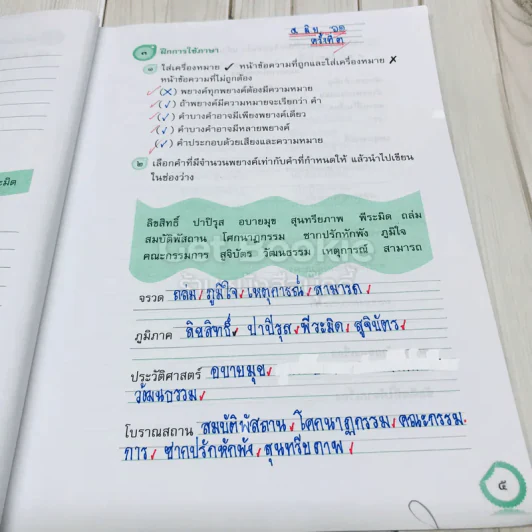 ๕ มิย. ๖๒
ครั้งที่ ๓
๓ ฝึกการใช้ภาษา
๑ ใส่เครื่องหมาย ✓ หน้าข้อความที่ถูกและใส่เครื่องหมาย ✗
หน้าข้อความที่ไม่ถูกต้อง
(✗) พยางค์ทุกพยางค์ต้องมีความหมาย
(✓) ถ้าพยางค์มีความหมายจะเรียกว่า คำ
(✓) คำบางคำอาจมีเพียงพยางค์เดียว
(✓) คำบางคำอาจมีหลายพยางค์
(✓) คำประกอบด้วยเสียงและความหมาย
๒ เลือกคำที่มีจำนวนพยางค์เท่ากับคำที่กำหนดให้ แล้วนำไปเขียน
ในช่องว่าง
ลิขสิทธิ์ ปาปิรุส อบายมุข สุนทรียภาพ พีระมิด ถล่ม
สมบัติพัสถาน โศกนาฏกรรม ซากปรักหักพัง ภูมิใจ
คณะกรรมการ สูจิบัตร วัฒนธรรม เหตุการณ์ สามารถ
ระมิด
จรวด ถล่ม ภูมิใจ เหตุการณ์ สามารถ
ภูมิภาค ลิขสิทธิ์ ปาปิรุส พีระมิด สูจิบัตร
ประวัติศาสตร์ อบายมุข
วัฒนธรรม
โบราณสถาน สมบัติพัสถาน โศกนาฏกรรม คณะกรรม
การ ซากปรักหักพัง สุนทรียภาพ
๕